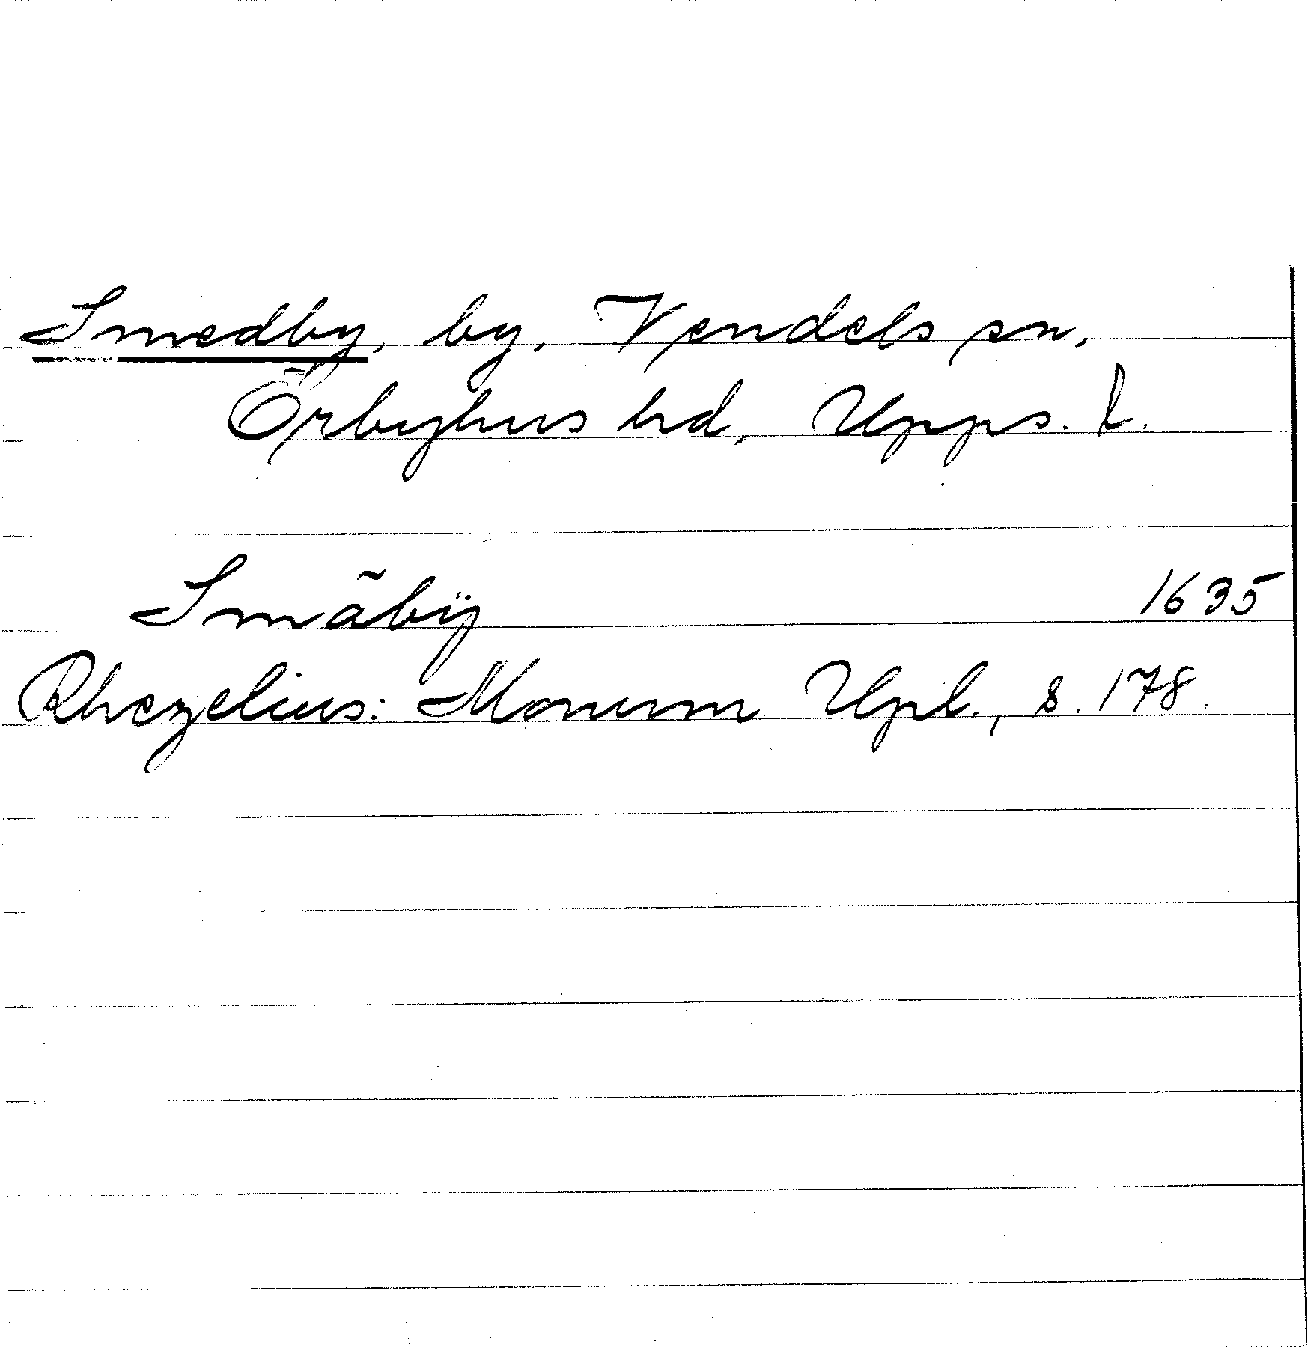 Smedby, by, Vendels sn,
Örbyhus hd, Upps. l.
Smãbÿ 1635
Rhezelius: Monum Upl., s. 178.